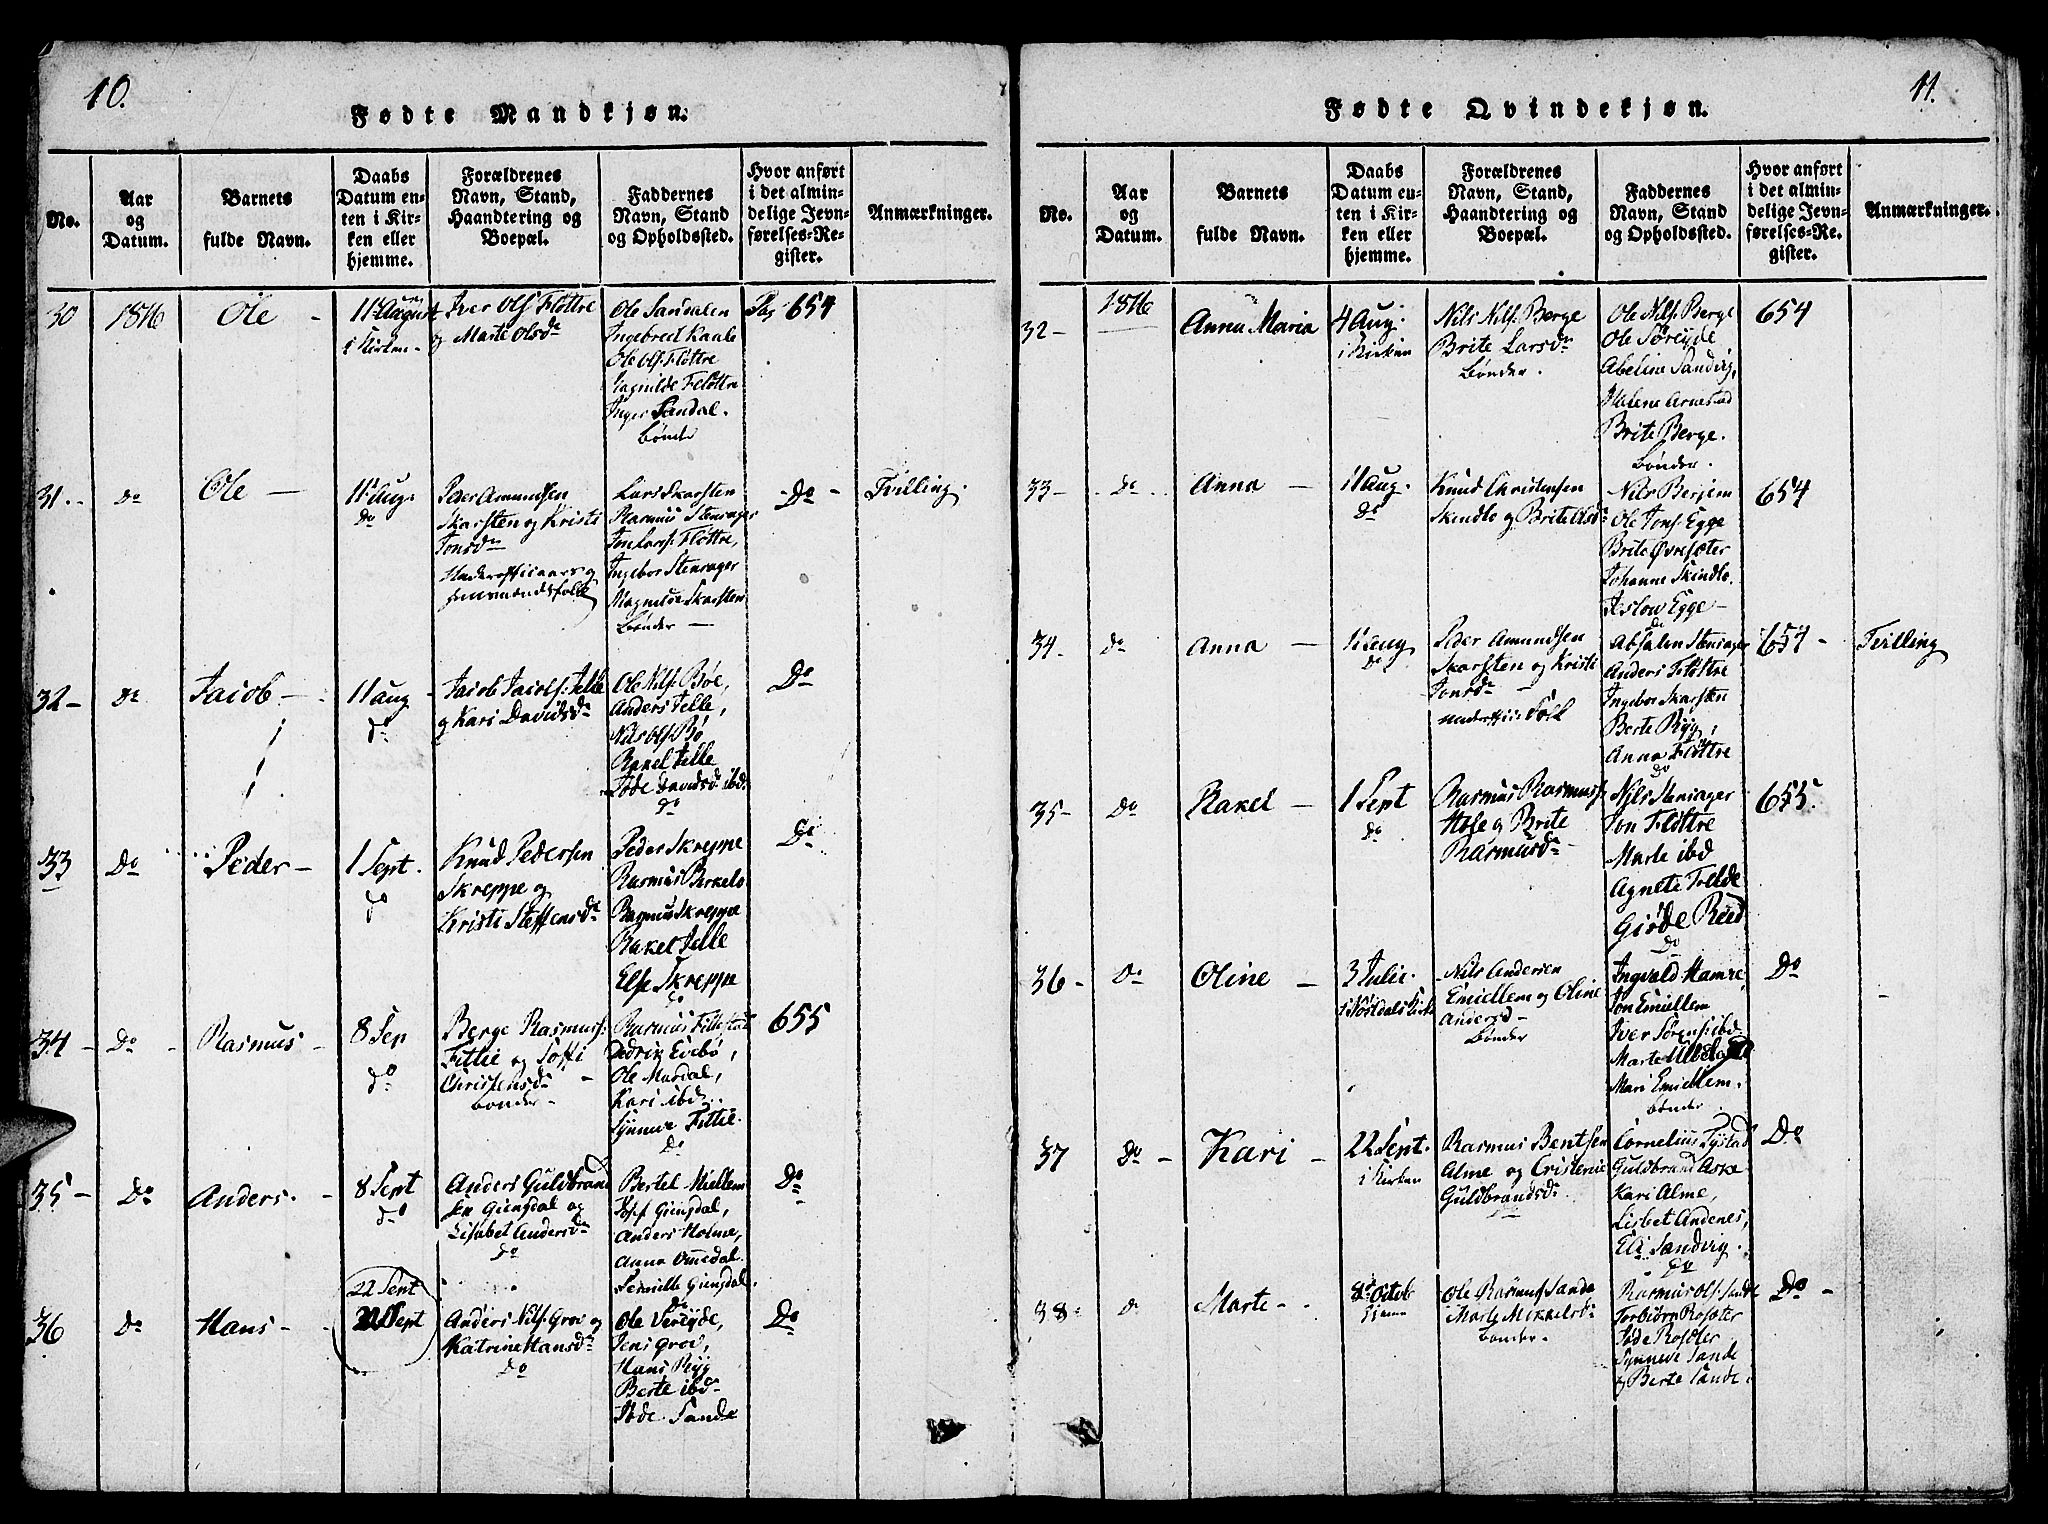 10.
Fødte Mandkjøn.
No.
Aar
og
Datum.
Barnets
fulde Navn.
Daabs
Datum en-
ten i Kir-
ken eller
hjemme.
Forældrenes
Navn, Stand,
Haandtering og
Boepæl.
Faddernes
Navn, Stand
og Opholdssted.
Hvor anført
i det almin-
delige Jevn-
førelses-Re-
gister.
Anmærkninger.
30
1816
Ole
11te August
i Kirken
Iver Ols. Fløttre
og Marte Olsdr
Ole Sandalen
Ingebred Kaale
Ole Ols. Fløttre
Magnilde Fløttre
Inger Sandal.
bønder
Pag 654
31
Do
Ole
11te Aug.
Do
Peder Amundsen
Skarsten og Kristi
Jonsdr
Underofficeers og
huusmandsfolk
Lars Skarsten
Rasmus Stensager
Jon Lars. Fløttre,
Ingebor Stensager
Magnilde Skarsten
bønder
Do
Tvilling.
32
Do
Jacob
11 Aug
Do
Jacob Jacobs: Jelle
og Kari Davidsdr
Ole Nils. Bøe,
Anders Jelle,
Nils Ols. Bø
Rakel Jelle
Jøde Davidsd ibd.
Do
Do
33
Do
Peder
1 Sept.
Do
Knud Pedersen
Skreppe og
Kristi Steffensdr
Peder Skreppe
Rasmus Berkelo
Ragnus Skreppe
Rakel Jelle
Else Skreppe
Do
Do
34
Do
Rasmus
8 Sep
Do
Berge Rasmuss:
Fittie og Soffi
Christensdr
bønder
Rasmus Fillestad
Didrik Evebø,
Ole Mardal,
Kari ibd.
Synneve Fittie.
Do
655
35
Do
Anders
8 Sept
Do
Anders Guldbrand
sen Giengdal og
Lisabet Andersdr
Do
Bertel Miellem
Giengdal,
Anders Holme,
Anna Omedal
Pernille Giengdal.
Do
Do
36
Do
Hans
22 Sept
22 Sept
Anders Nils. Grov og
Katrine Hansdr
Do
Ole Vereyde,
Jens Grov,
Hans Ryg
Berte ibd
Jøde Sande
Do
11.
Fødte Qvindekjøn.
No.
Aar
og
Datum.
Barnets
fulde Navn.
Daabs
Datum en-
ten i Kir-
ken eller
hjemme.
Forældrenes
Navn, Stand,
Haandtering og
Boepæl.
Faddernes
Navn, Stand
og Opholdssted.
Hvor anført
i det almin-
delige Jevn-
førelses-Re-
gister.
Anmærkninger.
32
1816
Anna Maria
4 Aug.
i Kirken
Nils Nils. Berge
Brite Larsdr
bønder.
Ole Nils. Berge
Ole Søreyde
Abeline Sandvig,
Helene Arnestad
Brite Berge.
bønder.
654
33
Do
Anna
11 Aug.
Do
Knud Christensen
Skindlo og Brite Olsdr
Nils Berjem
Ole Jons. Egge
Brite Øvresæter
Johanne Skindlo.
Jeslow Egge
Do
654
34
Do
Anna
11 Aug
Do
Peder Amundsen
Skarsten og Kristi
Jonsdr
underoffice Folk
Absalen Stensager
Anders Fløttre
Ingebor Skarsten
Berte Ryg,
Anna Fløttre
Do
654
Tvilling
35
Do
Rakel
1 Sept
Do
Rasmus Rasmuss:
Hole og Brite
Rasmusdr
Nils Stensager
Jon Fløttre
Marte ibd
Agnete Tvelde
Giøde Reed
Do
655.
36
Do
Oline
3 Julii.
i Nosdals Kirke
Nils Andersen
Emiellem og Oline
Andersd
bønder
Ingvald Hamre,
Jon Emiellem
Iver Sørens: ibd
Marte
Mari Emiellem.
bønder
Do
37
Do
Kari
22 Sept.
i Kirken
Rasmus Bentsen
Alme og Cristenie
Guldbrandsdr
Cornelius Tystad
Guldbrand Aske
Kari Alme,
Lisbet Andenes,
Eli Sandvig.
Do
Do
38
Do
Marte
8de Octob
hjemme
Ole Rasmus. Sande
Marte Mikkelsdr
bønder
Rasmus Ols. Sande
Torbiørn Rosæter
Jøde Rosæter
Synneve Sande
og Berte Sande.
Do